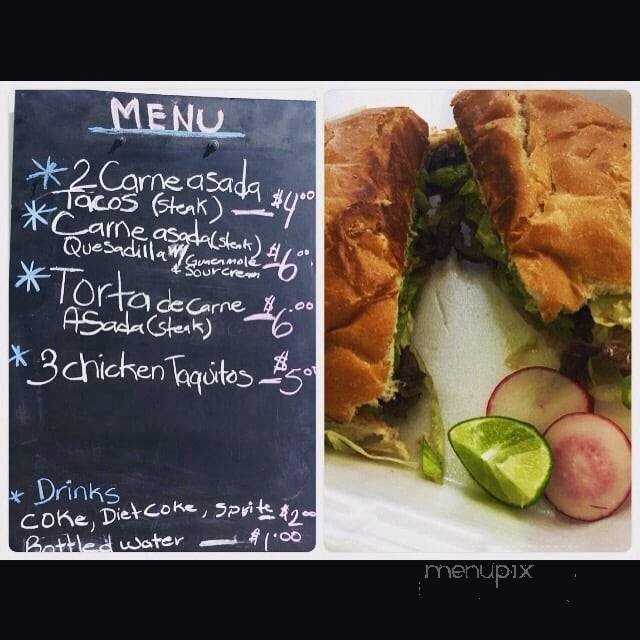 MENU
* 2 Carne asada
Tacos (steak) — $4.00
* Carne asada (steak)
Quesadilla w/ Guacamole
& sour cream $6.00
* Torta de carne
Asada (steak) $6.00
* 3 chicken Taquitos — $5.00
* Drinks
Coke, Diet Coke, Sprite $2.00
Bottled water — $1.00
menupix